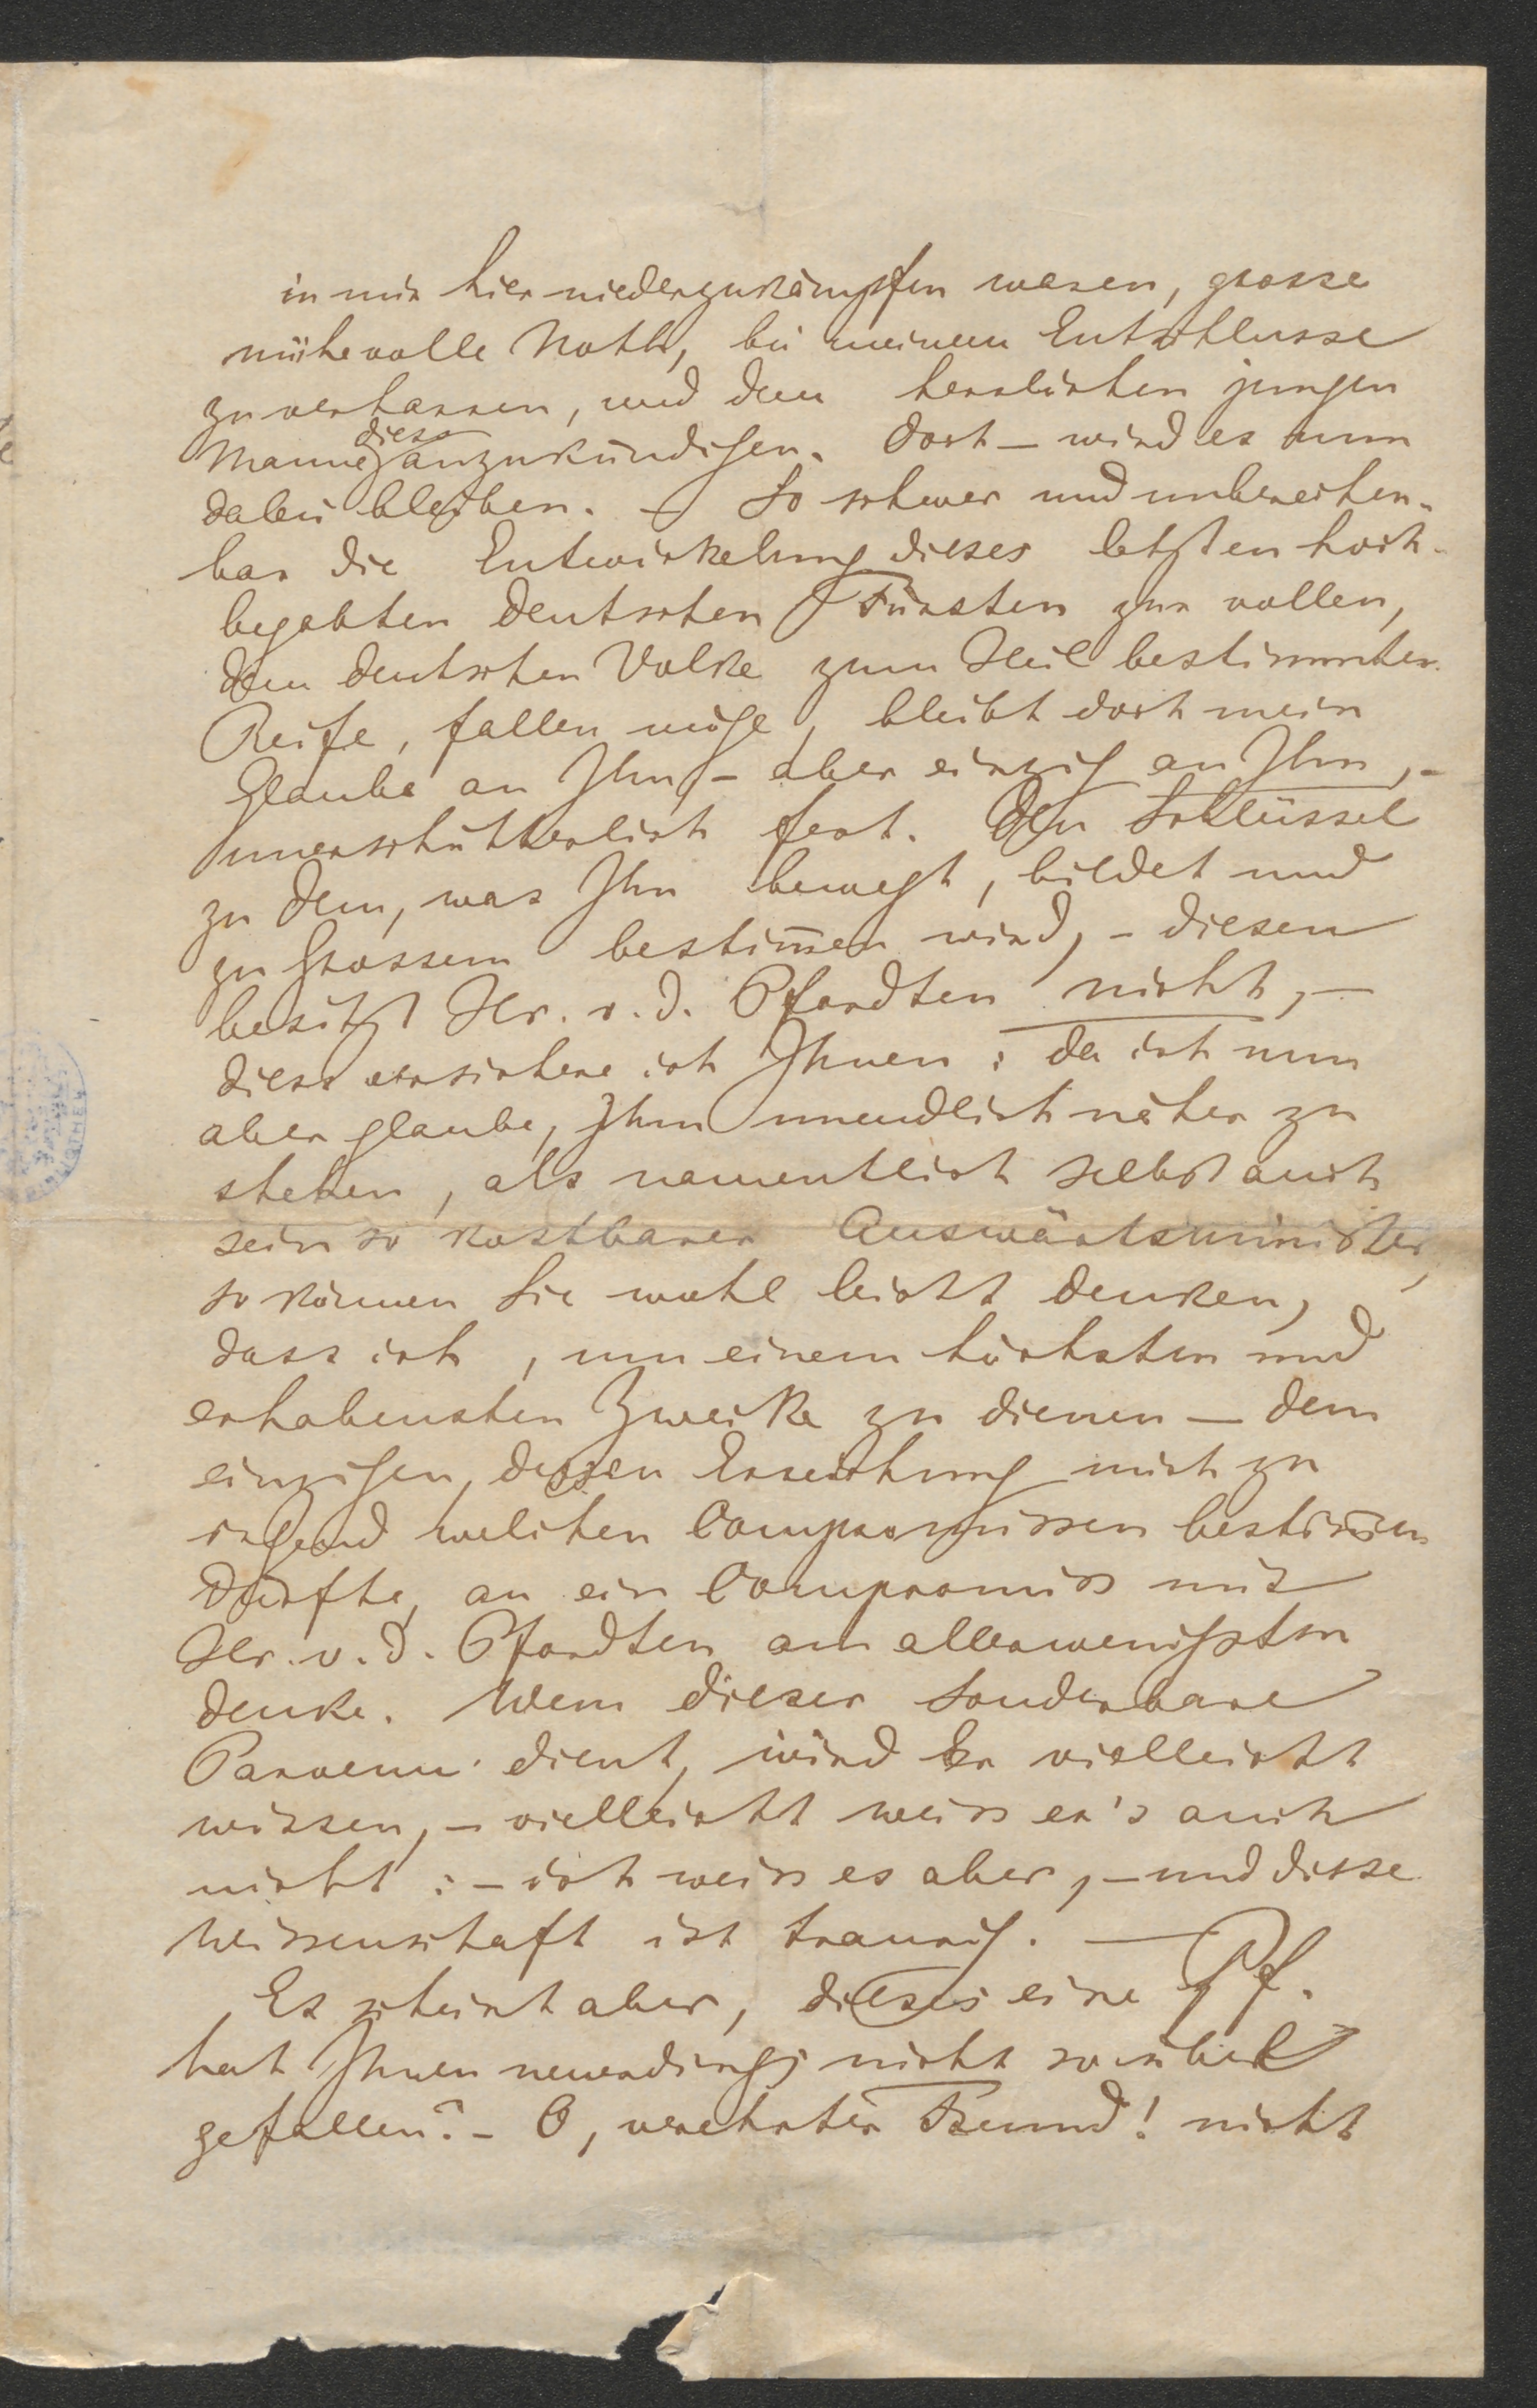 in mir hier niederzukämpfen waren, grosse
mühevolle Noth, bei meinem Entschlusse
zu verharren, und dem herrlichen jungen
Manne diess anzukündigen. Doch – wird es nun
dabei bleiben. – So schwer und unberechen-
bar die Entwickelung dieses letzten hoch-
begabten deutschen Fürsten zur vollen,
dem deutschen Volke zum Heil bestimmten
Reife, fallen möge, bleibt doch mein
Glaube an Ihn, – aber einzig an Ihn, –
unerschütterlich fest. Den Schlüssel
zu dem, was Ihn bewegt, bildet und
zu Grossem bestim̅en wird, – diesen
besitzt Hr. v. d. Pfordten nicht, –
diess versichere ich Ihnen: da ich nun
aber glaube, Ihm unendlich näher zu
stehen, als namentlich selbst auch
sein so kostbarer Auswärtsminister,
so können Sie wohl leicht denken,
dass ich, um einem höchsten und
erhabensten Zwecke zu dienen – dem
einzigen, dessen Erreichung mich zu
irgend welchen Compromissen bestim̅en
dürfte, an ein Compromiss mit
Hr. v. d. Pfordten am allerwenigsten
denke. Wem dieser sonderbare
Parvenu dient, wird Er vielleicht
wissen, – vielleicht weiss er's auch
nicht: – ich weiss es aber, – und diese
Wissenschaft ist traurig. –
Es scheint aber, dieses eine Pf.
hat Ihnen neuerdings nicht so übel
gefallen? – O, verehrter Freund! nicht